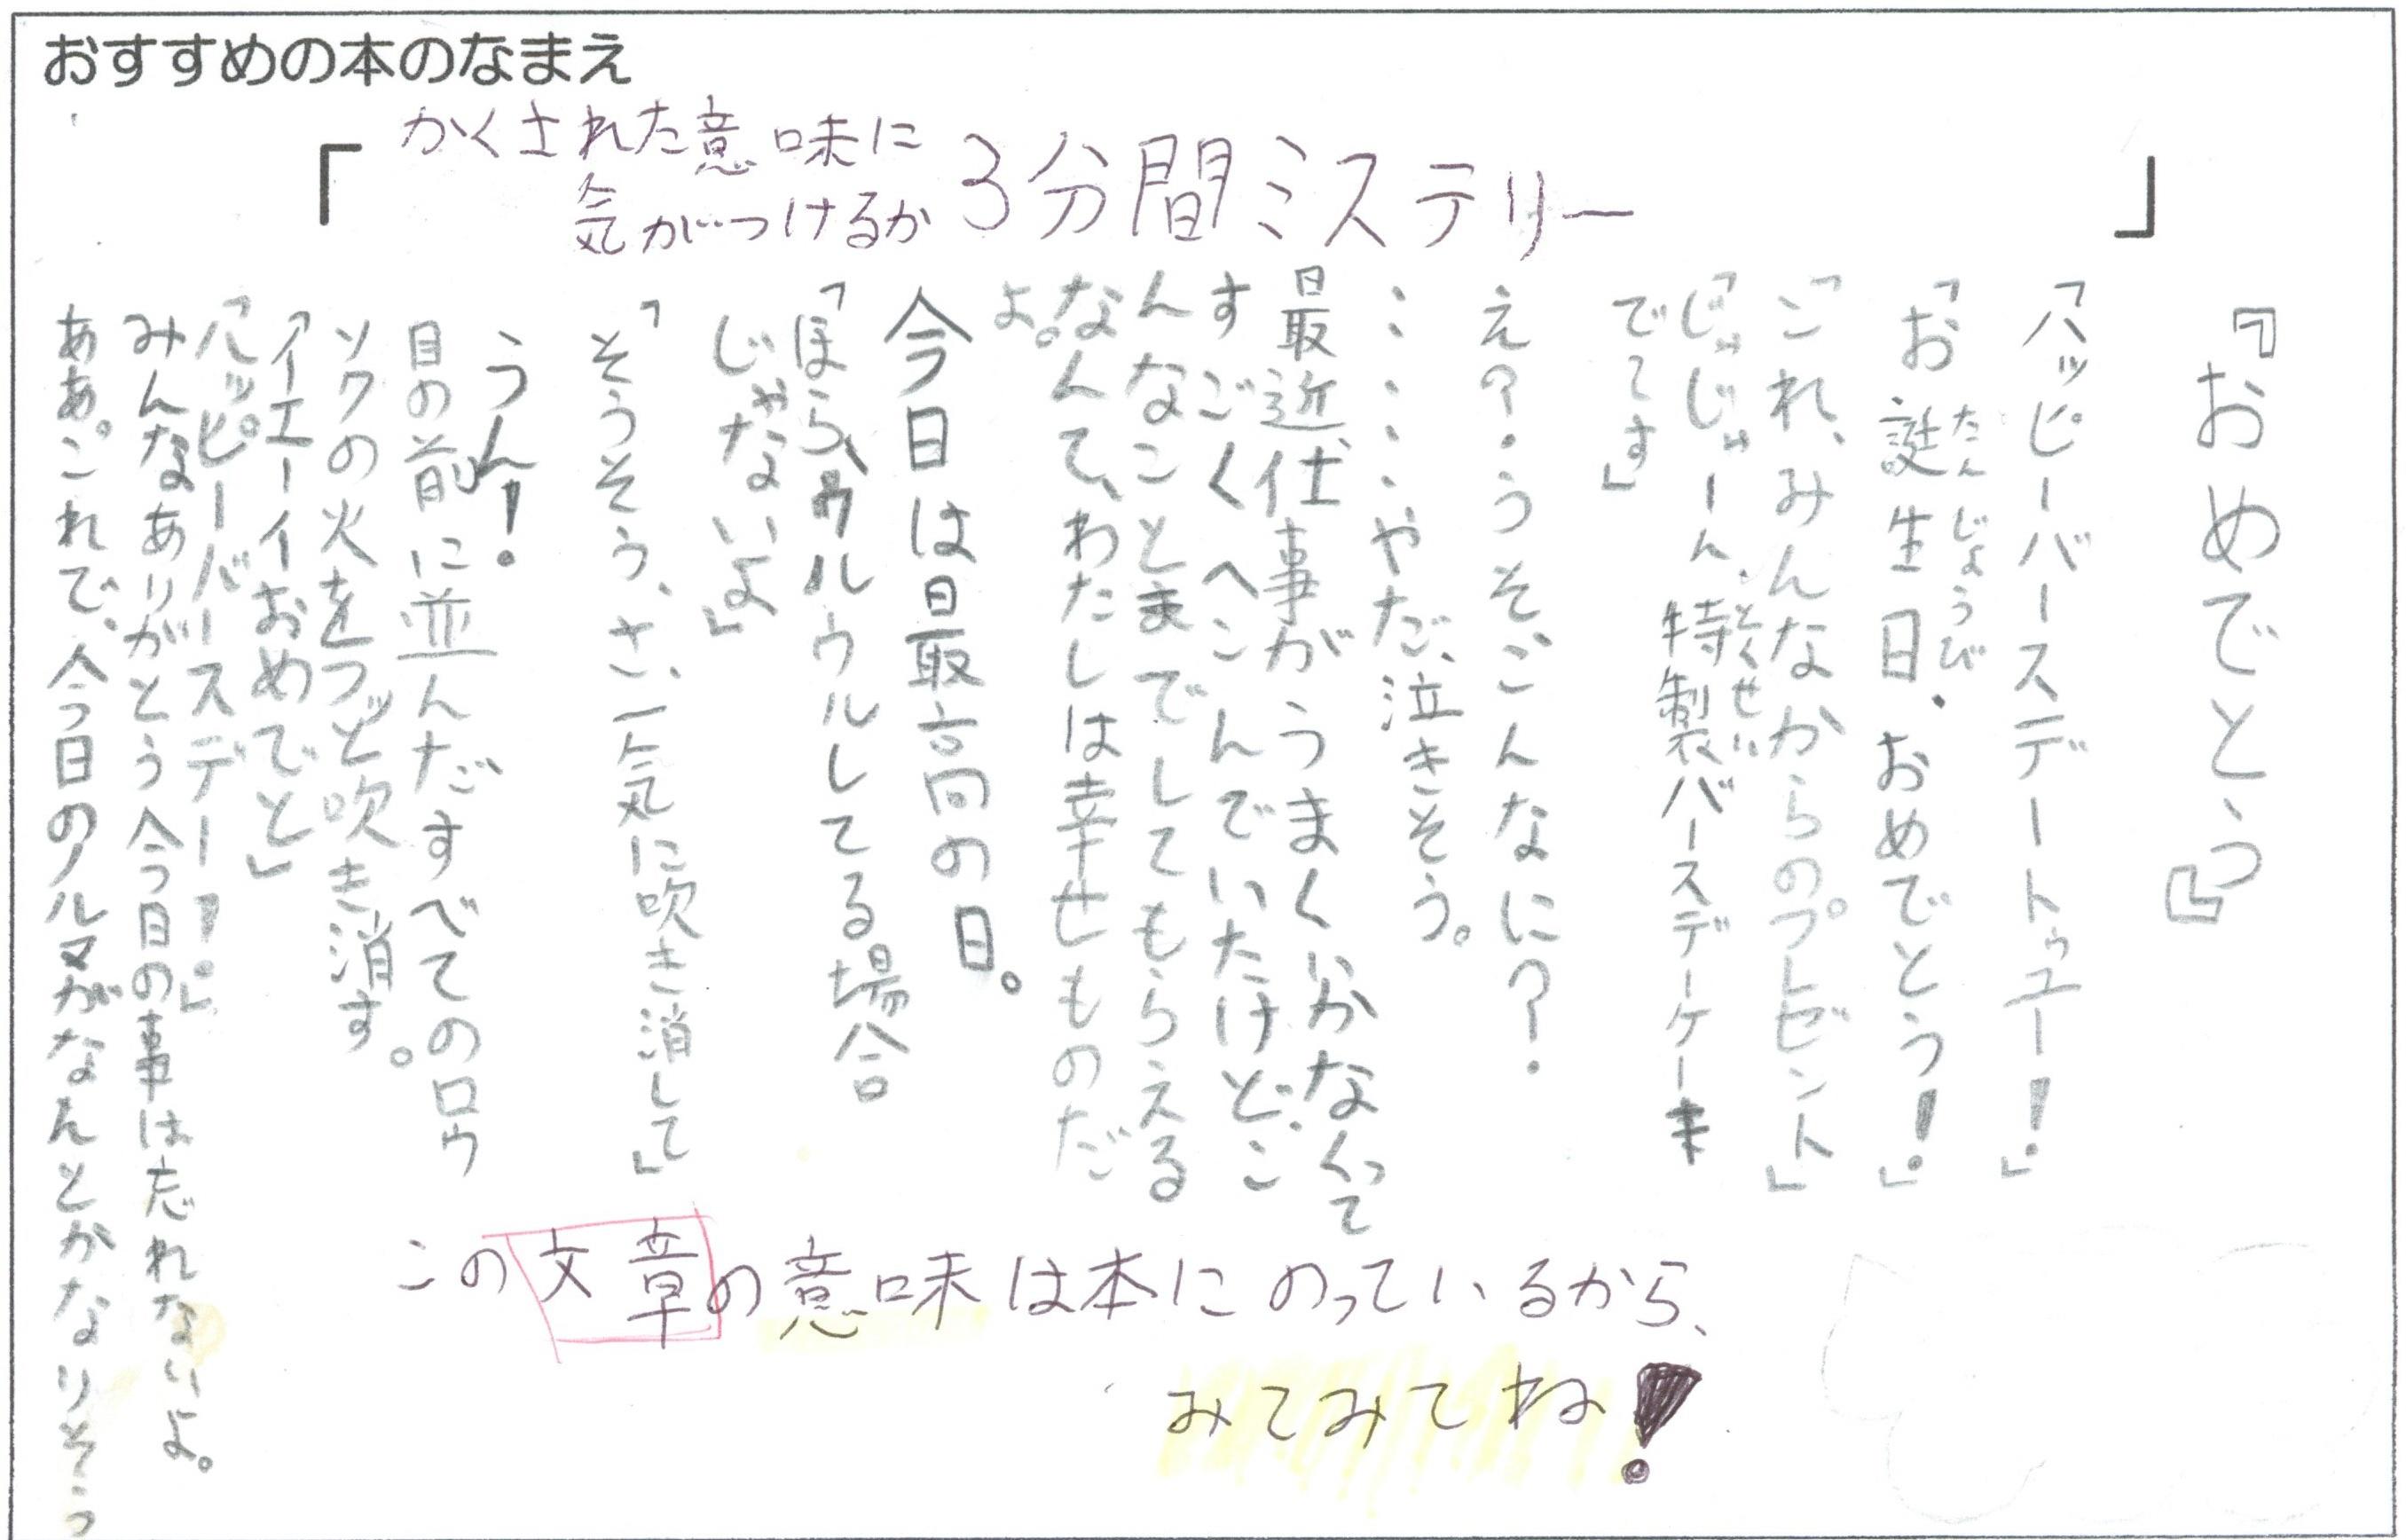 おすすめの本のなまえ
「かくされた意味に
気がつけるか 3分間ミステリー」
『おめでとう』
「ハッピーバースデートゥユー!」
「お誕生日、おめでとう!」
たんじょうび
「これ、みんなからのプレゼント」
「じゃじゃーん、特製バースデーケーキ
とくせい
でてす」
え?うそこんなに?
……やだ、泣きそう。
最近仕事がうまくいかなくって
すごくへこんでいたけど、こ
んなことまでしてもらえる
なんて、わたしは幸せものだ
よ。
今日は最高の日。
「ほら、ウルウルしてる場合
じゃないよ」
「そうそう、さ、一気に吹き消して」
うん!
目の前に並んだすべてのロウ
ソクの火をフッと吹き消す。
「イエーイおめでと」
「ハッピーバースデー!」
みんなありがとう今日の事は忘れないよ。
ああ。これで、今日のノルマがなんとかなりそう
この文章の意味は本にのっているから、
みてみてね!